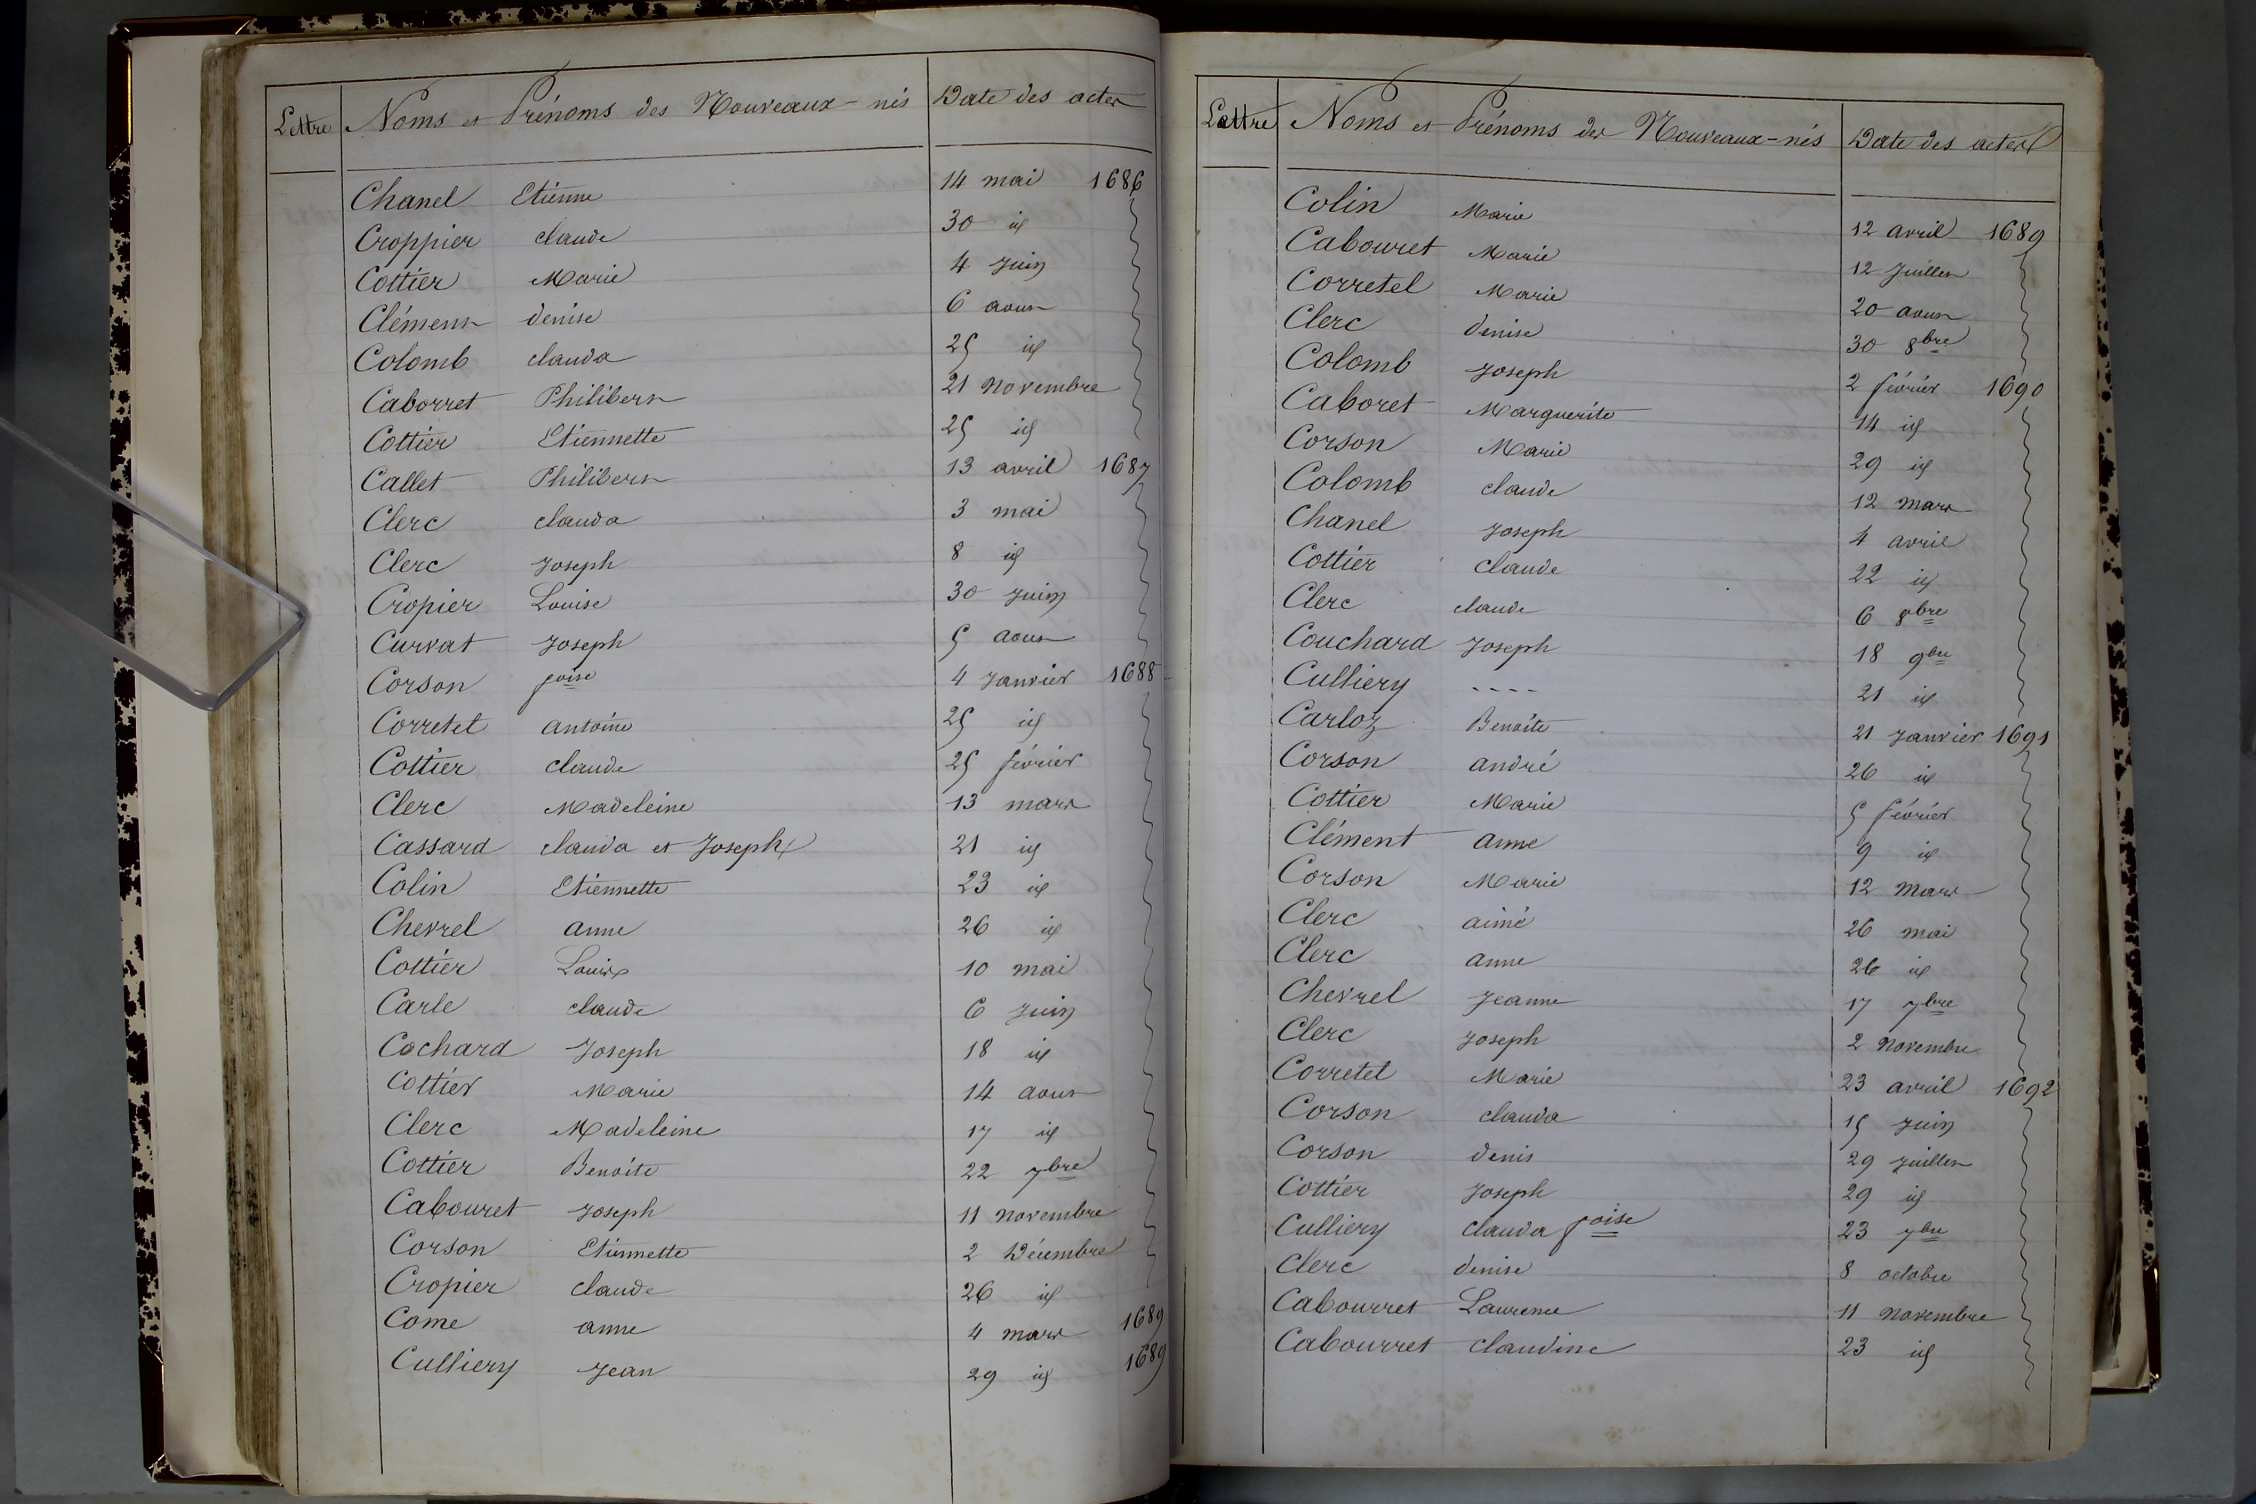 Lettre Noms et Prénoms des Nouveaux-nés Date des actes
Chanel Etienne 14 mai 1686
Croppier claude 30 id
Cottier Marie 4 Juin
Clément denise 6 aout
Colomb clauda 25 id
Caborret Philibert 21 Novembre
Cottier Etiennette 25 id
Callet Philibert 13 avril 1687
Clerc clauda 3 mai
Clerc Joseph 8 id
Cropier Louise 30 Juin
Curvat Joseph 5 aout
Corson foise 4 Janvier 1688
Corretet antoine 25 id
Cottier claude 25 février
Clerc Madeleine 13 mars
Cassard clauda et Joseph 21 id
Colin Etiennette 23 id
Chevrel anne 26 id
Cottier Louis 10 mai
Carle claude 6 Juin
Cochard Joseph 18 id
Cottier Marie 14 aout
Clerc Madeleine 17 id
Cottier Benoite 22 7bre
Cabouret Joseph 11 novembre
Corson Etiennette 2 Décembre
Cropier claude 26 id
Come anne 4 mars 1689
Culliery Jean 29 id 1689
Lettre Noms et Prénoms des Nouveaux-nés Date des actes
Colin Marie 12 avril 1689
Cabouret Marie 12 Juillet
Corretel Marie 20 aout
Clerc denise 30 8bre
Colomb Joseph 2 février 1690
Caboret Marguerite 14 id
Corson Marie 29 id
Colomb claude 12 mars
Chanel Joseph 4 avril
Cottier Claude 22 id
Clerc claude 6 8bre
Couchard Joseph 18 9bre
Culliery ---- 21 id
Carloz Benoite 21 Janvier 1691
Corson andré 26 id
Cottier Marie 5 février
Clément anne 9 id
Corson Marie 12 Mars
Clerc aimé 26 mai
Clerc anne 26 id
Chevrel Jeanne 17 7bre
Clerc Joseph 2 Novembre
Corretet Marie 23 avril 1692
Corson clauda 15 Juin
Corson denis 29 Juillet
Cottier Joseph 29 id
Culliery clauda foise 23 7bre
Clerc denise 8 octobre
Cabourret Laurence 11 novembre
Cabourret claudine 23 id